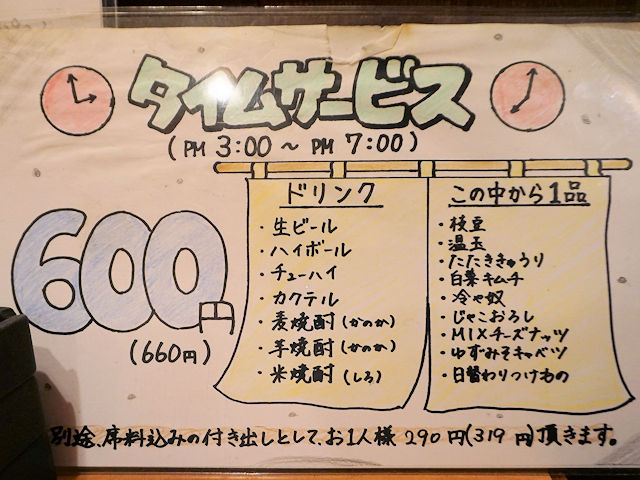 タイムサービス
(PM 3:00 ~ PM 7:00)
600円
(660円)
ドリンク
・生ビール
・ハイボール
・チューハイ
・カクテル
・麦焼酎(かのか)
・芋焼酎(かのか)
・米焼酎(しろ)
この中から1品
・枝豆
・温玉
・たたききゅうり
・白菜キムチ
・冷や奴
・じゃこおろし
・MIXチーズナッツ
・ゆずみそキャベツ
・日替わりつけもの
別途、席料込みの付き出しとして、お1人様290円(319円)頂きます。